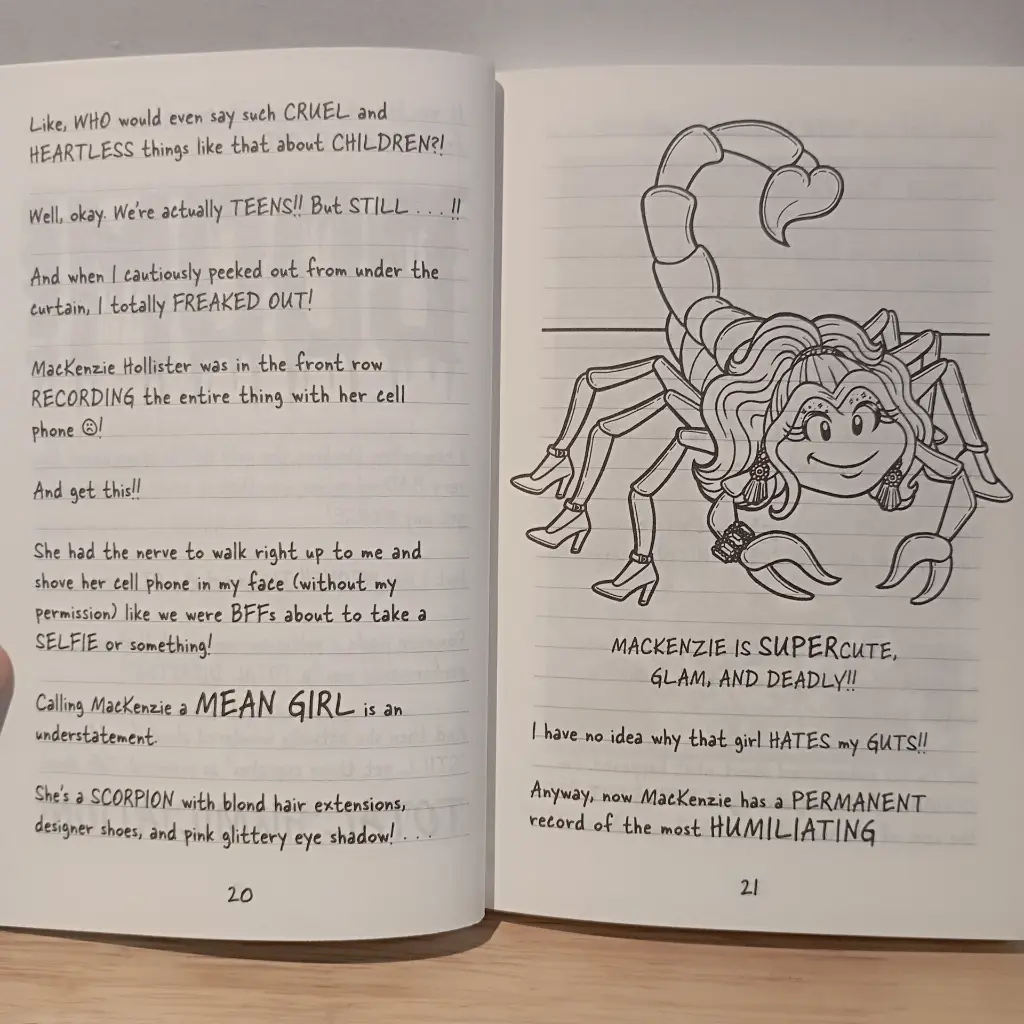 Like, WHO would even say such CRUEL and
HEARTLESS things like that about CHILDREN?!
Well, okay. We're actually TEENS!! But STILL . . . !!
And when I cautiously peeked out from under the
curtain, I totally FREAKED OUT!
MacKenzie Hollister was in the front row
RECORDING the entire thing with her cell
phone ☹!
And get this!!
She had the nerve to walk right up to me and
shove her cell phone in my face (without my
permission) like we were BFFs about to take a
SELFIE or something!
Calling MacKenzie a MEAN GIRL is an
understatement.
She's a SCORPION with blond hair extensions,
designer shoes, and pink glittery eye shadow! . . .
20
MACKENZIE IS SUPERCUTE,
GLAM, AND DEADLY!!
I have no idea why that girl HATES my GUTS!!
Anyway, now MacKenzie has a PERMANENT
record of the most HUMILIATING
21